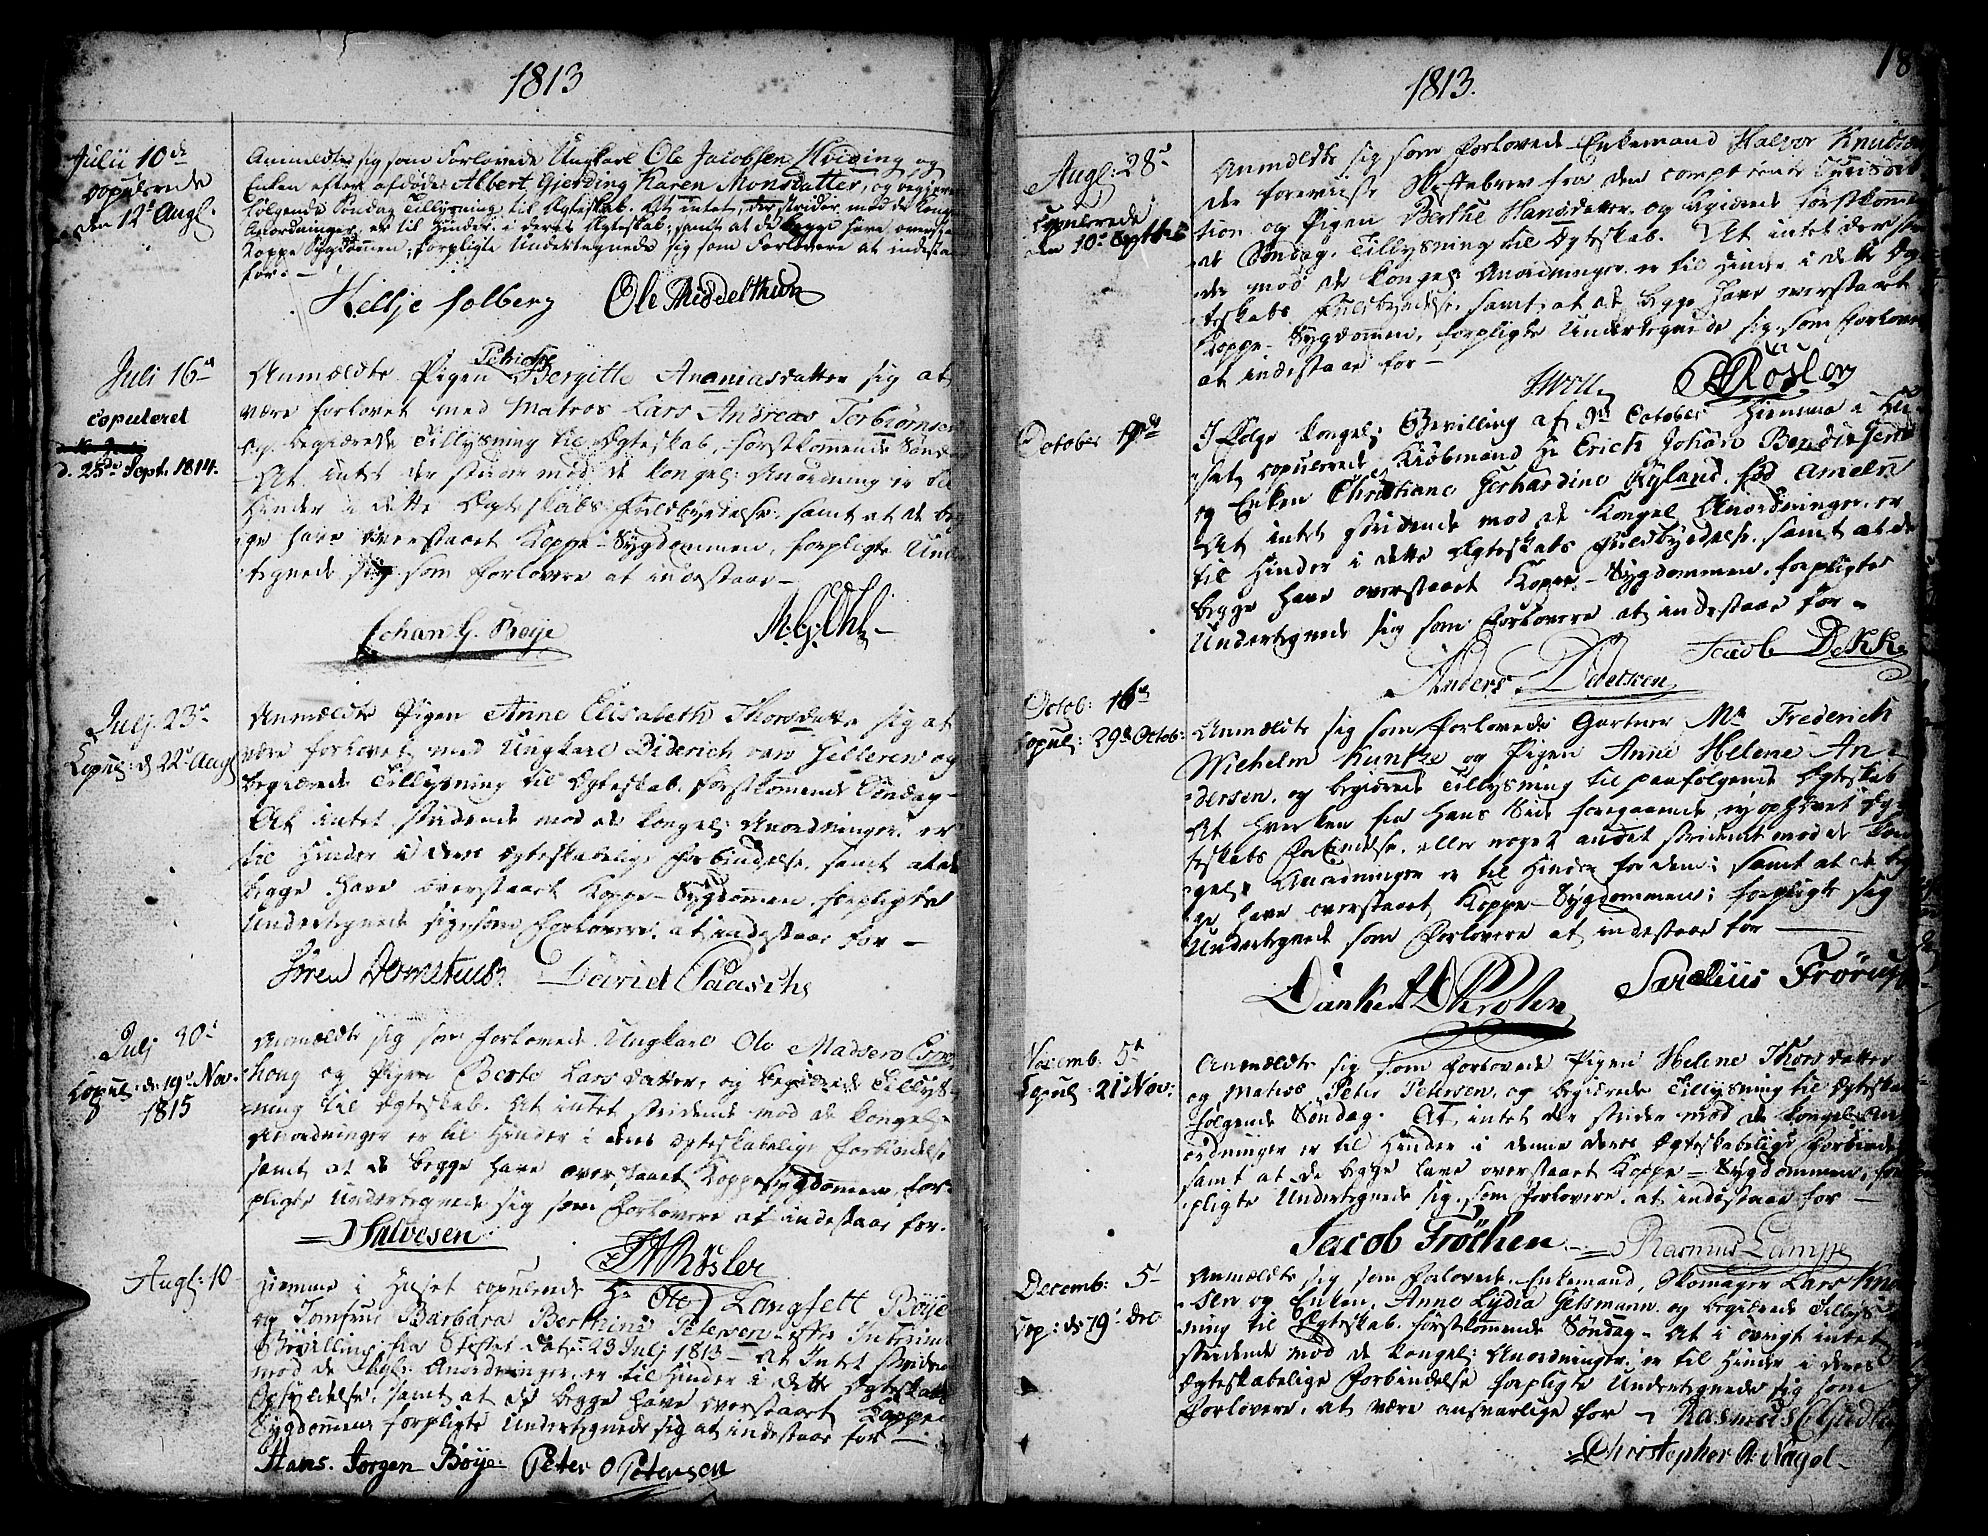 1813
Julii 10de
copulerede
den 12te Augl.
Anmeldte sig som Forlovede Ungkarl Ole Jacobsen Hviding og
Enken efter afdøde Albert Gjerding Karen Monsdatter, og begjerer
følgende Søndag Tillysning til Ægteskab. At intet, der strider mod de kongl.
Anordninger er til Hinder i deres Ægteskab, samt at de begge have overstaaet
Koppe Sygdommen, forpligte Undertegnede sig, som Forlovere at indestaae
for.
Ole Middelthun
Juli 16d
copuleret
d. 25de Sept. 1814.
Petricke
Anmeldte Pigen Bergitte Ananiasdatter sig at
være forlovet med Matros Lars Andreas Torbiørnsen
og begierede Tillysning til Ægteskab, førstkommende Søndag
At intet der strider mod de kongel: Anordning er til
Hinder i dette Ægteskabs Fuldbyrdelse, samt at de beg-
ge have overstaaet Koppe-Sygdommen, forpligte Under-
tegnede sig som Forlovere at indestaae
Johan G. Bøye
Julj 23d
Copul: d 22d Augl
Anmeldte Pigen Anne Elisabeth Thorsdatter sig at
være forlovet med Ungkarl Diderich von Helleren og
begierede Tillysning til Ægteskab førstkommende Søndag
At intet stridende mod de kongel: Anordninger er
til Hinder i deres Ægteskabelige Forbindelse, samt at de
begge have overstaaet Koppe-Sygdommen, forpligte
Undertegnede sig som Forlovere, at indestaae for
Søren David Claasche
Julj 30d
Copul: d: 19d Nov.
1815
Anmeldte sig som Forlovede Ungkarl Ole Madsen
og Pigen Berte Larsdatter, og begierede Tillys-
ning til Ægteskab. At intet stridende mod de kongel:
Anordninger er til Hinder i deres Ægteskabelige Forbindelse
samt at de begge have overstaaet Koppesygdommen, for-
pligte Undertegnede sig som Forlovere at indestaae for.
Salvesen
Røsler
Augl: 10
Hiemme i Huset copulerede Hr Ole Langfelt Bøye
og Jomfrue Barbara Berthine Petersen efter Interims
Bevilling fra Stiftet Dat: 23 Julj 1813 - At Intet stridende
mod de kgl: Anordninger er til Hinder i dette Ægteskabs
Opfyldelse, samt at de begge have overstaaet Koppe-
Sygdommen forpligte Undertegnede sig at indestaae for
Hans Jørgen Bøye Peter O Petersen
1813.
18
Augl: 28d
copulerede
den 10d Septbr
Anmeldte sig som Forlovede Enkemand Halvor Knudsen
der foreviiste Skiftebrev fra den competente Jurisdic-
tion og Pigen Berthe Hansdatter og begierede førstkommen-
de Søndag Tillysning til Ægteskab. At intet der stri-
der mod de kongel: Anordninger er til Hinder i dette Æg-
teskabs Fuldbyrdelse, samt at de begge have overstaaet
Koppe-Sygdommen, forpligte Undertegnede sig som Forlovere
at indestaae for
Røsler
October
I Følge kongel: Bevilling af October Hiemme i Hu-
set copulerede Kiøbmand Hr Erich Johan Bendixsen
og Enken Christiane Gerhardine Nyland, fød Ameln
At intet stridende mod de Kongel Anordninger er
til Hinder i dette Ægteskabs Fuldbyrdelse, samt at de
begge have overstaaet Koppe-Sygdommen, forpligte
Undertegnede sig som Forlovere at indestaae for
Anders Jacob Dekke
Octob: 16d
Copul: 29de Octob:
Anmeldte sig som Forlovede Gartner Mr Frederich
Wilhelm Kuntze og Pigen Anne Helene An-
dersen, og begierede Tillysning til paafølgende Ægteskab
At hverken fra hans Side foregaaende, ej ophævet Æg-
teskabs Forbindelse, eller noget andet stridende mod de kon-
gel: Anordninger er til Hinder for dem; samt at de beg-
ge have overstaaet Koppe-Sygdommen; forpligte sig
Undertegnede som Forlovere at indestaae for
Dankert D Krohn
Novemb: 5d
Copul: 21d Nov:
Anmeldte sig som Forlovede Pigen Helene Thorsdatter
og Matros Peter Petersen, og begierede Tillysning til Ægteskab
følgende Søndag. At intet der strider mod de kongel: An-
ordninger er til Hinder i denne deres Ægteskabelige Forbindelse
samt at de begge have overstaaet Koppe-Sygdommen; for-
pligte Undertegnede sig, som Forlovere, at indestaae for
Jacob Frøchen Rasmus Lampe
Decemb: 5
Cop: d: 19d Dec
Anmeldte sig som Forlovede Enkemand, Skomager Lars Knud-
sen og Enken, Anne Lydia Getsmann og begierede Tillys-
ning til Ægteskab førstkommende Søndag - At i øvrigt intet
stridende mod de kongel: Anordninger er til Hinder i deres
Ægteskabelige Forbindelse forpligte Undertegnede sig som
Forlovere, at være ansvarlige for
Christopher A: Nagel